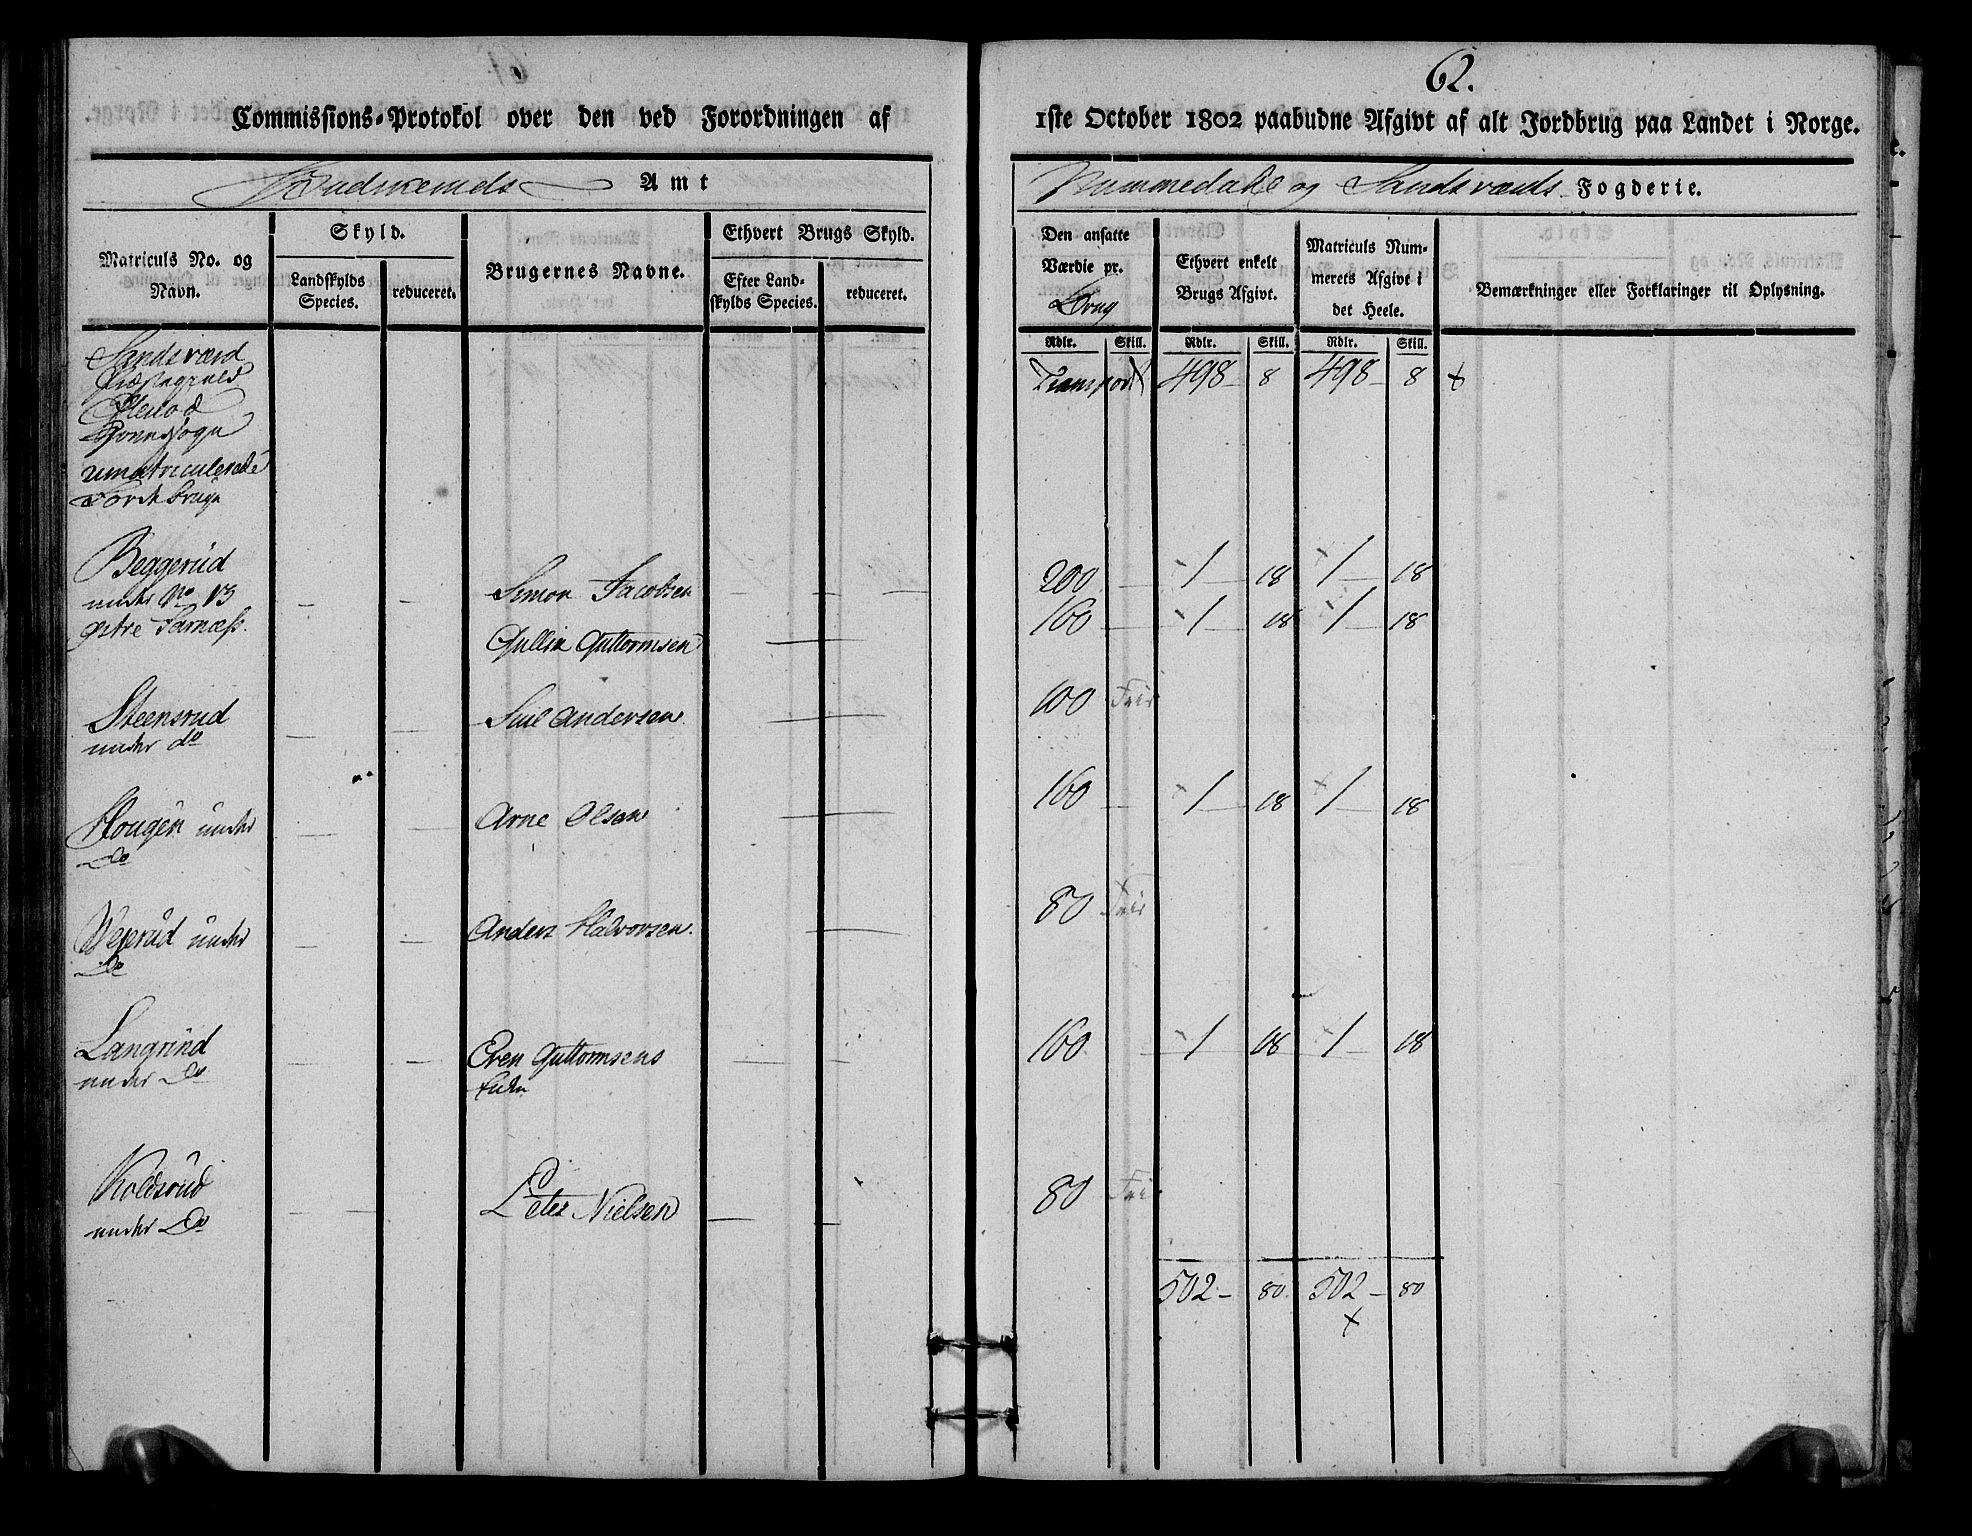 62.
Commissions-Protokol over den ved Forordningen af 1ste October 1802 paabudne Afgivt af alt Jordbrug paa Landet i Norge.
Amt
Nummedahl og Sandsværds Fogderie.
Matriculs No. og Navn.
Skyld.
Landskylds Species.
reduceret.
Brugernes Navne.
Ethvert Brugs Skyld.
Efter Landskylds Species.
reduceret.
Den ansatte Værdie pr. Brug
Ethvert enkelt Brugs Afgivt.
Matriculs Nummerets Afgivt i det Heele.
Bemærkninger eller Forklaringer til Oplysning.
Rdlr. Skill. Rdlr. Skill. Rdlr. Skill.
Sandsværd
Præstegield
Transport 498 - 8 498 - 8 +
umatriculerede
Jordbruge
Beggerud
under No 13
Simon Jacobsen 200 1 18 1 18
østre Jarnæss.
Gullik Guttormsen 160 1 18 1 18
Steensrud
under do
Andersen 100 Frie
Hougen under
Do
Arne Olsen 160 1 18 1 18
Vejerud under
Do
Anders Halvorsen. 80 Frie
Langrind
under Do
Even Guttormsens
Enke
160 1 18 1 18
Koldsrud
under Do
Peter Nielsen 80 Frie
502 - 80 502 - 80
+